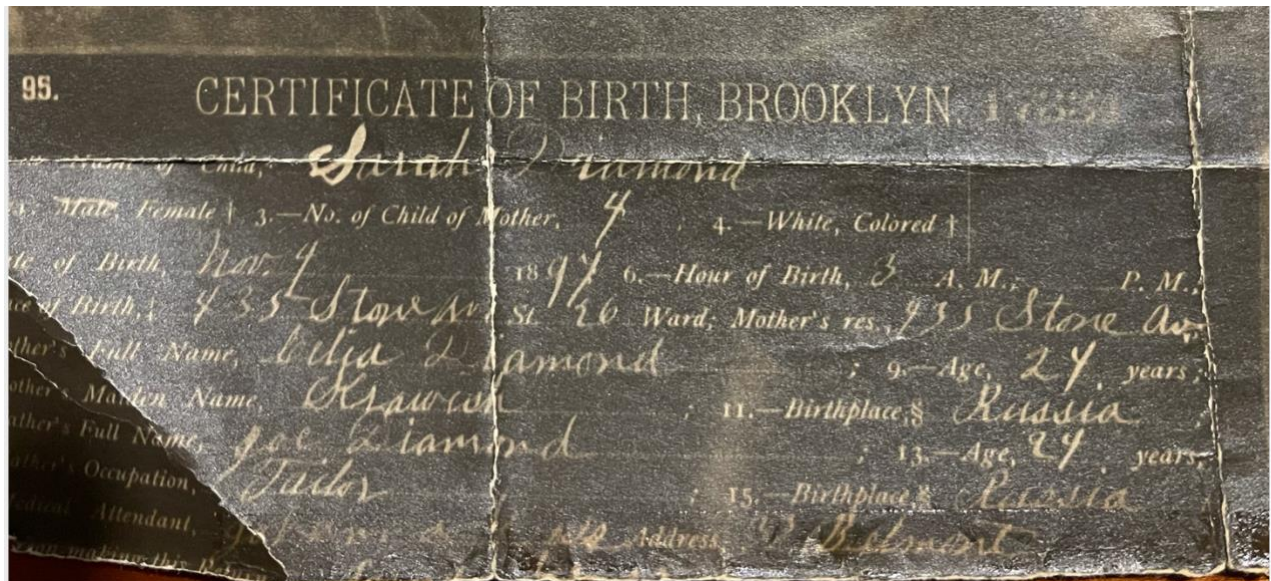 95.
CERTIFICATE OF BIRTH, BROOKLYN.
Name of Child, Sarah Diamond
Male, Female † 3.—No. of Child of Mother, 4 4.—White, Colored †
of Birth, Nov. 4 1897 6.—Hour of Birth, 3 A. M., P. M.,
of Birth, 435 Stone Av. St. 26 Ward; Mother's res., 435 Stone Av.
Full Name, Celia Diamond ; 9.—Age, 24 years;
Maiden Name, ; 11.—Birthplace,§ Russia
Full Name, Joe Diamond ; 13.—Age, 24 years,
Occupation, Tailor ; 15.—Birthplace,§ Russia
Medical Attendant, Address, Belmont
making this Return